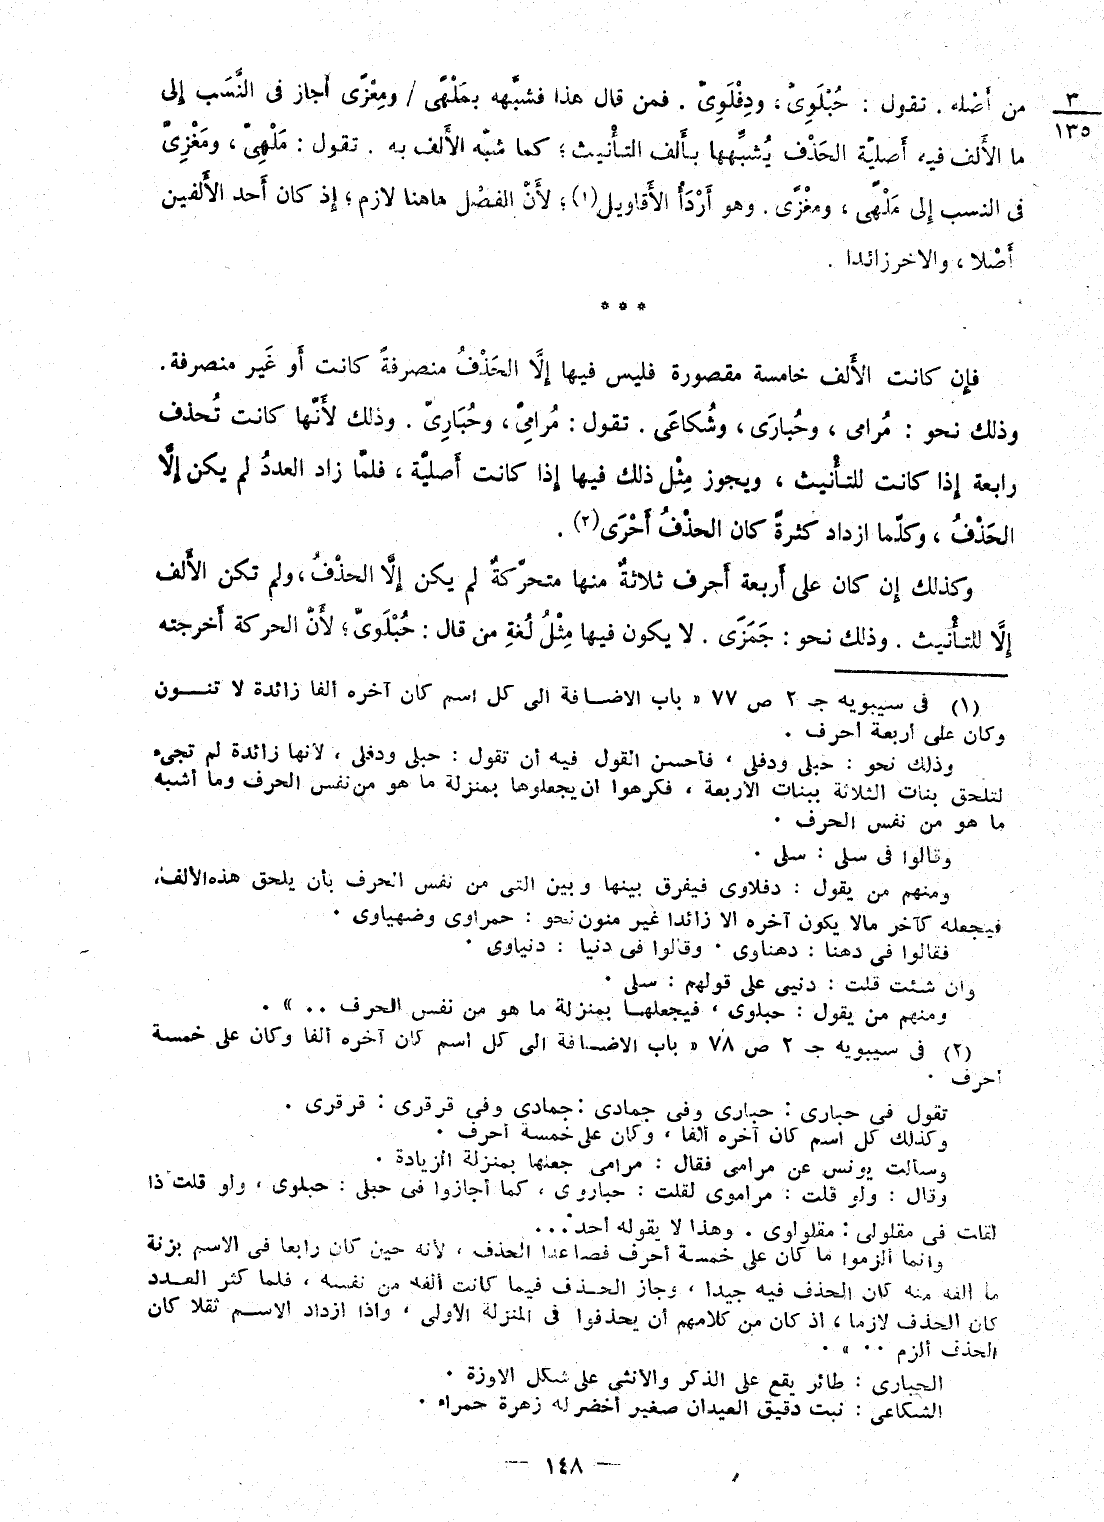 من أَصْله . تقول : حُبْلَوِىّ ، ودِفْلَوِىّ . فمن قال هذا فشبَّهه بمَلْهًى / ومِعْزًى أجاز فى النَّسَب إلى
٣
١٣٥
ما الأَلف فيه أَصليّة الحَذْف يُشبِّهها بأَلف التأْنيث ؛ كما شبّه الأَلف به . تقول : مَلْهِىّ ، ومَغْزِىّ
فى النسب إلى مَلْهًى ، ومَغْزًى . وهو أَرْدَأُ الأَقاويل(١) ؛ لأَنَّ الفصْل هاهنا لازم ؛ إذ كان أَحد الأَلفين
أَصْلا ، والاخر زائدا .
* * *
فإن كانت الأَلف خامسة مقصورة فليس فيها إلَّا الحَذْفُ منصرفةً كانت أَو غَير منصرفة .
وذلك نحو : مُرامى ، وحُبارَى ، وشُكاعَى . تقول : مُرامِىّ ، وحُبَارِىّ . وذلك لأَنّها كانت تُحذف
رابعة إذا كانت للتأْنيث ، ويجوز مِثْل ذلك فيها إذا كانت أَصليّة ، فلمّا زاد العددُ لم يكن إلَّا
الحَذْفُ ، وكلّما ازداد كثرةً كان الحذْفُ أَحْرَى(٢) .
وكذلك إن كان على أَربعة أَحرف ثلاثةٌ منها متحرّكةٌ لم يكن إلَّا الحذْفُ ، ولم تكن الأَلف
إلَّا للتأْنيث . وذلك نحو : جَمَزَى . لا يكون فيها مِثْلُ لُغةِ من قال : حُبْلَوىّ ؛ لأَنَّ الحركة أَخرجته
(١) فى سيبويه جـ ٢ ص ٧٧ « باب الاضافة الى كل اسم كان آخره ألفا زائدة لا تنون
وكان على أربعة أحرف .
وذلك نحو : حبلى ودفلى ، فأحسن القول فيه أن تقول : حبلى ودفلى ، لأنها زائدة لم تجىء
لتلحق بنات الثلاثة ببنات الأربعة ، فكرهوا ان يجعلوها بمنزلة ما هو من نفس الحرف وما أشبه
ما هو من نفس الحرف .
وقالوا فى سلى : سلى .
ومنهم من يقول : دفلاوى فيفرق بينها وبين التى من نفس الحرف بأن يلحق هذه الألف،
فيجعله كآخر مالا يكون آخره الا زائدا غير منون نحو : حمراوى وضهياوى .
فقالوا فى دهنا : دهناوى . وقالوا فى دنيا : دنياوى .
وان شئت قلت : دنيى على قولهم : سلى .
ومنهم من يقول : حبلوى ، فيجعلها بمنزلة ما هو من نفس الحرف .. » .
(٢) فى سيبويه جـ ٢ ص ٧٨ « باب الاضافة الى كل اسم كان آخره ألفا وكان على خمسة
أحرف .
تقول فى حبارى : حبارى وفى جمادى : جمادى وفى قرقرى : قرقرى .
وكذلك كل اسم كان آخره ألفا ، وكان على خمسة أحرف .
وسألت يونس عن مرامى فقال : مرامى جعلها بمنزلة الزيادة .
وقال : ولو قلت : مراموى لقلت : حباروى ، كما أجازوا فى حبلى : حبلوى ، ولو قلت ذا
لقلت فى مقلولى : مقلولوى . وهذا لا يقوله أحد ...
وانما ألزموا ما كان على خمسة أحرف فصاعدا الحذف ، لأنه حين كان رابعا فى الاسم بزنة
ما ألفه منه كان الحذف فيه جيدا ، وجاز الحذف فيما كانت ألفه من نفسه ، فلما كثر العدد
كان الحذف لازما ، اذ كان من كلامهم أن يحذفوا فى المنزلة الأولى ، واذا ازداد الاسم ثقلا كان
الحذف ألزم .. » .
الحبارى : طائر يقع على الذكر والانثى على شكل الاوزة .
الشكاعى : نبت دقيق العيدان صغير أخضر له زهرة حمراء .
— ١٤٨ —